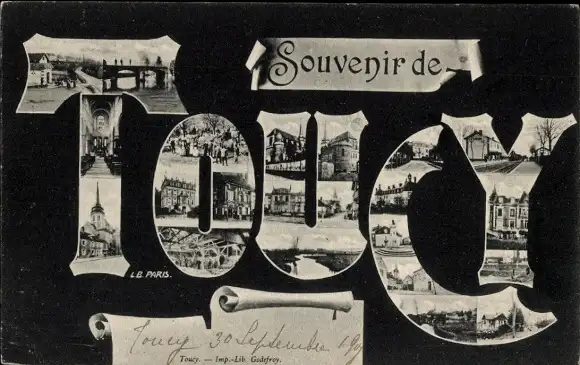 Souvenir de
TOUCY
L.B. PARIS.
Toucy 30 Septembre
Toucy. — Imp.-Lib. Godefroy.